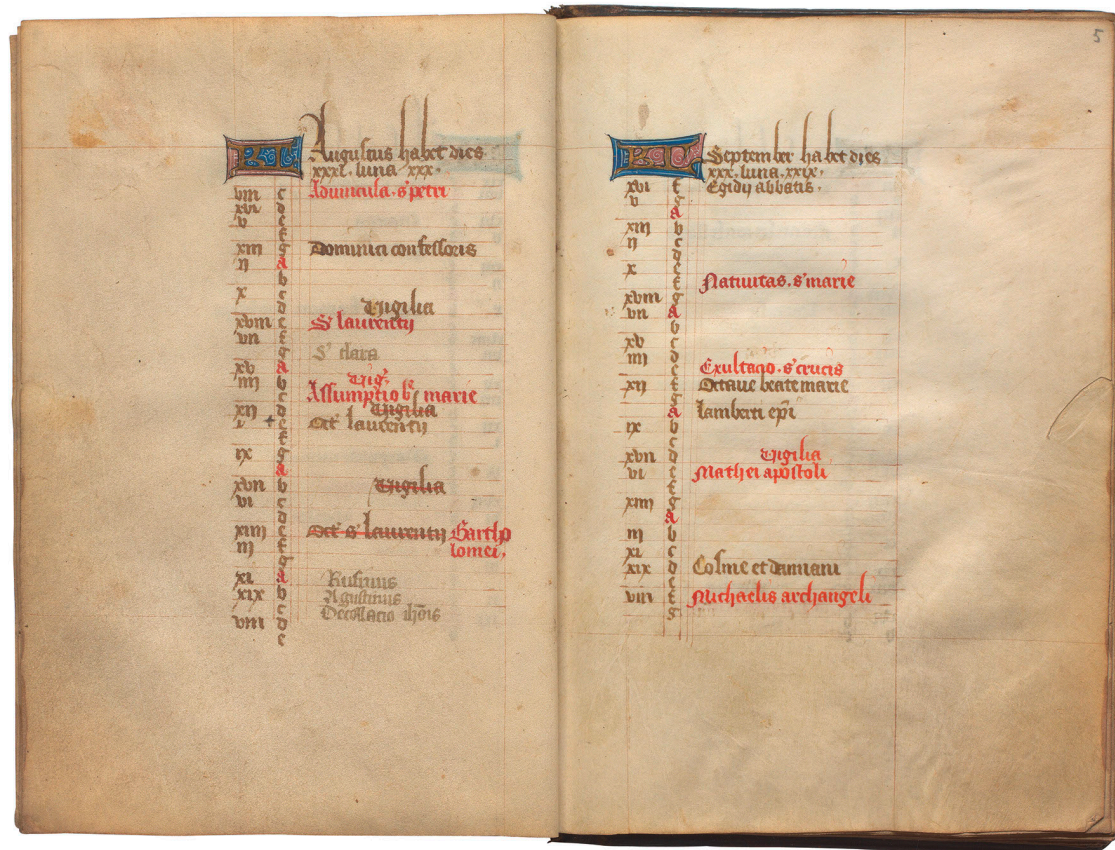 KL Augustus habet dies
xxxi. luna xxx.
viii c Aduincula. s' petri
xvi d
v e
f
xiii g Dominici confessoris
ii a
b
x c
d Vigilia
xviii e S' laurentij
vii f
g S' clara
xv a
iiii b Vig'
c Assumptio be marie
xii d Vigilia
i e Oct' laurentij
f
ix g
a
xvii b
vi c
d Vigilia
xiiii e Oct' s' laurentij Bartho
iii f lomei.
g
xi a Rufinus
xix b Agustinus
c Decollacio ihois
viii d
e
5
KL September habet dies
xxx. luna. xxix.
xvi f Egidij abbatis.
v g
a
xiii b
ii c
d
x e
f Natiuitas. s' marie
xviii g
vii a
b
xv c
iiii d
e Exultatio. s' crucis
xii f Octaue beate marie
g
a lamberti epi
ix b
c
xvii d Vigilia
vi e Mathei apostoli
f
xiiii g
a
iii b
xi c
xix d Cosme et damiani
e
viii f Michaelis archangeli
g